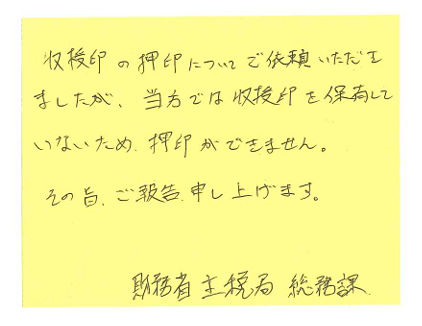 収授印の押印についてご依頼いただき
ましたが、当方では収授印を保有して
いないため、押印ができません。
その旨、ご報告申し上げます。
財務省主税局 総務課